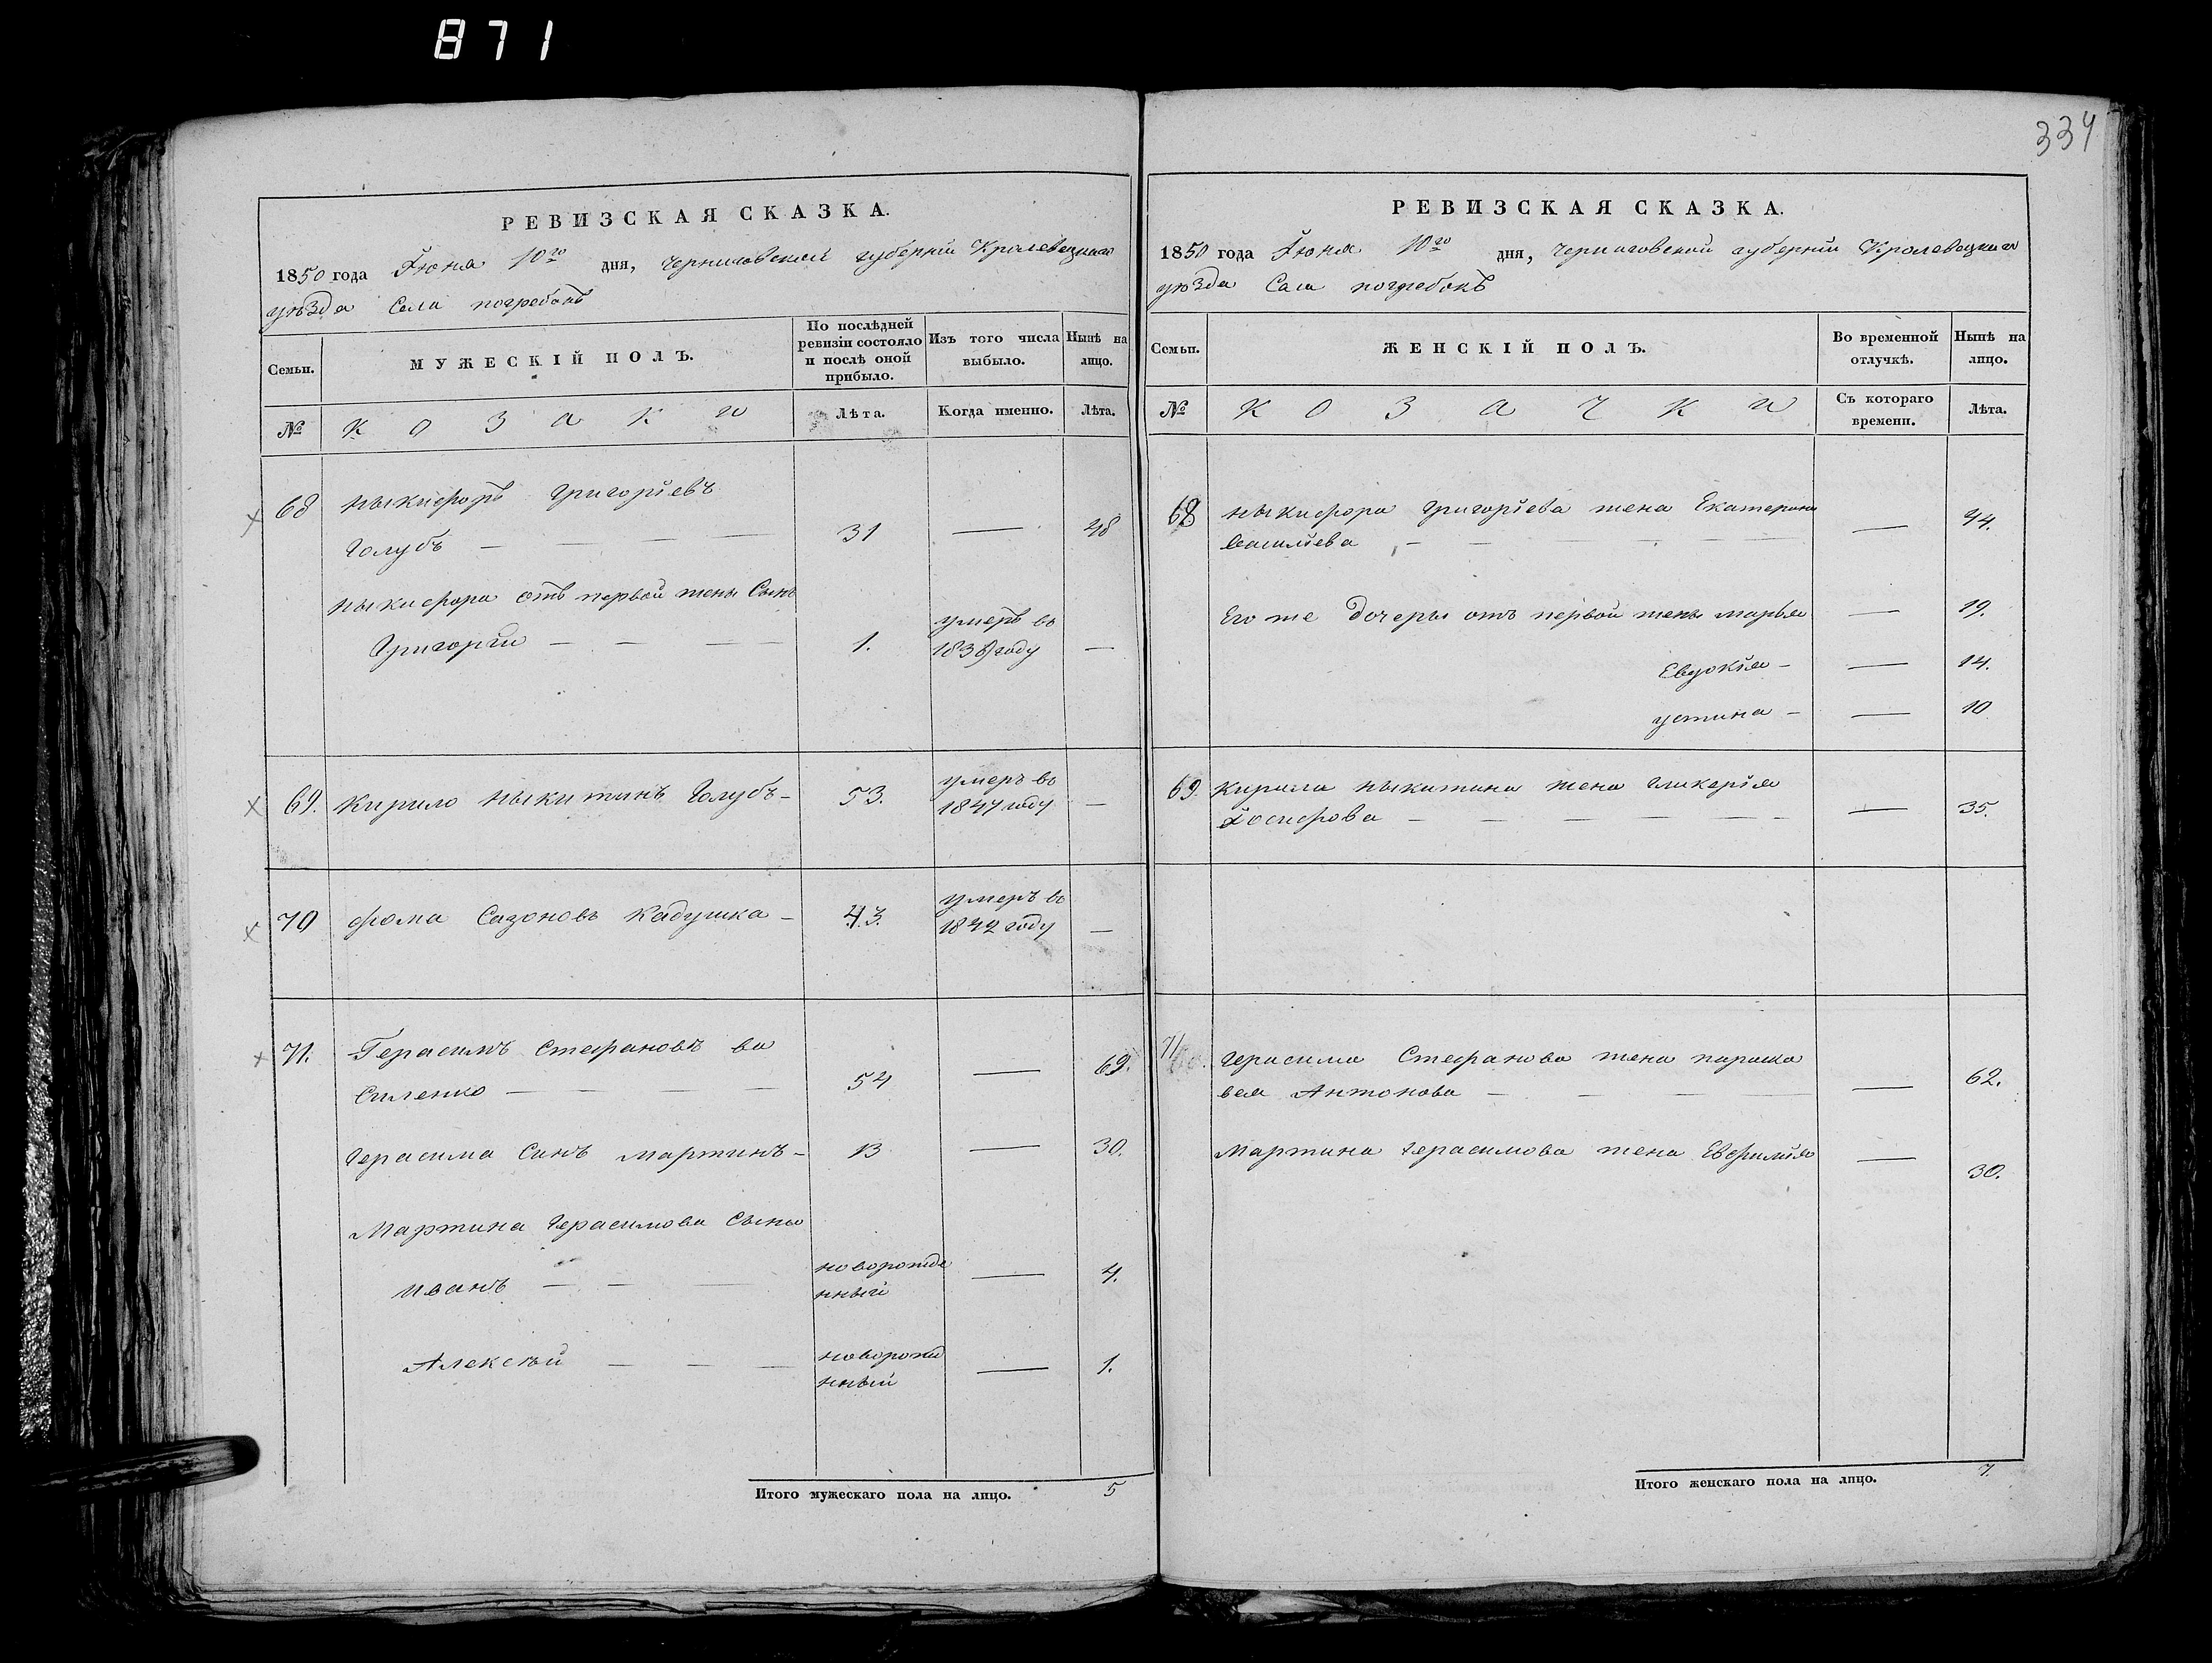 871
334
РЕВИЗСКАЯ СКАЗКА.
1850 года Іюня 10го дня, Черниговской губерніи Кролевецкаго
уѣзда Села погребокъ
Семьи.
МУЖЕСКІЙ ПОЛЪ.
По послѣдней ревизіи состояло и послѣ оной прибыло.
Изъ того числа выбыло.
Нынѣ на лицо.
№
козаки
Лѣта.
Когда именно.
Лѣта.
68 Ныкифоръ Григорíевъ
Голубъ — — — — 31 — 48
Ныкифора отъ первой жены Сынъ
Григорій — — — 1. умеръ въ 1838 году —
69. Кирило Ныкитинъ Голубъ - 53. умеръ въ 1847 году —
70 Фома Сазоновъ Кадушка - 43. умеръ въ 1842 году —
71. Герасимъ Стефановъ ва
силенко — — — — 54 — 69.
Герасима Синъ Мартинъ - 13 — 30.
Мартина Герасимова Сыны
Иванъ — — — новорожде нный — 4.
Алексѣй — — — новорожд нный — 1.
Итого мужескаго пола на лицо. 5
РЕВИЗСКАЯ СКАЗКА.
1850 года Іюня 10го дня, Черниговской губерніи Кролевецкаго
уѣзда Села погребокъ
Семьи.
ЖЕНСКІЙ ПОЛЪ.
Во временной отлучкѣ.
Нынѣ на лицо.
№
козачки
Съ котораго времени.
Лѣта.
68 Ныкифора Григоріева жена Екатерина
Василіева — — — — — — 44.
Его же дочеры отъ первой жены Марья — 19.
Евдокія - — 14.
устина - — 10
69. Кирила Ныкитина жена Гликерія
Іосифова — — — — — — 35.
71. Герасима Стефанова жена параска
вея Антонова — — — — — 62.
Мартина Герасимова жена Евфимія — 30.
Итого женскаго пола на лицо. 7.